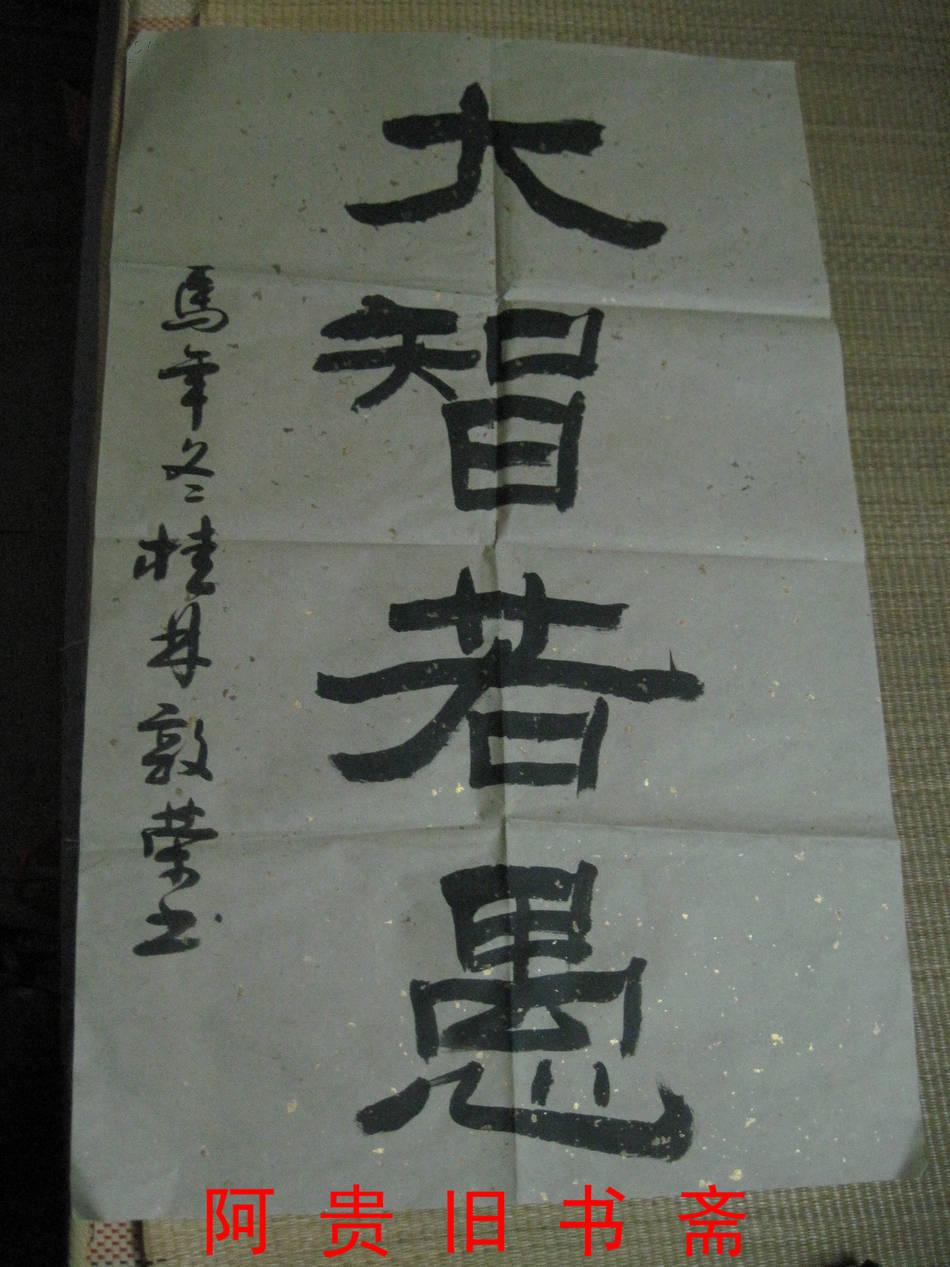 大智若愚
馬年冬桂林敦荣书
阿贵旧书斋